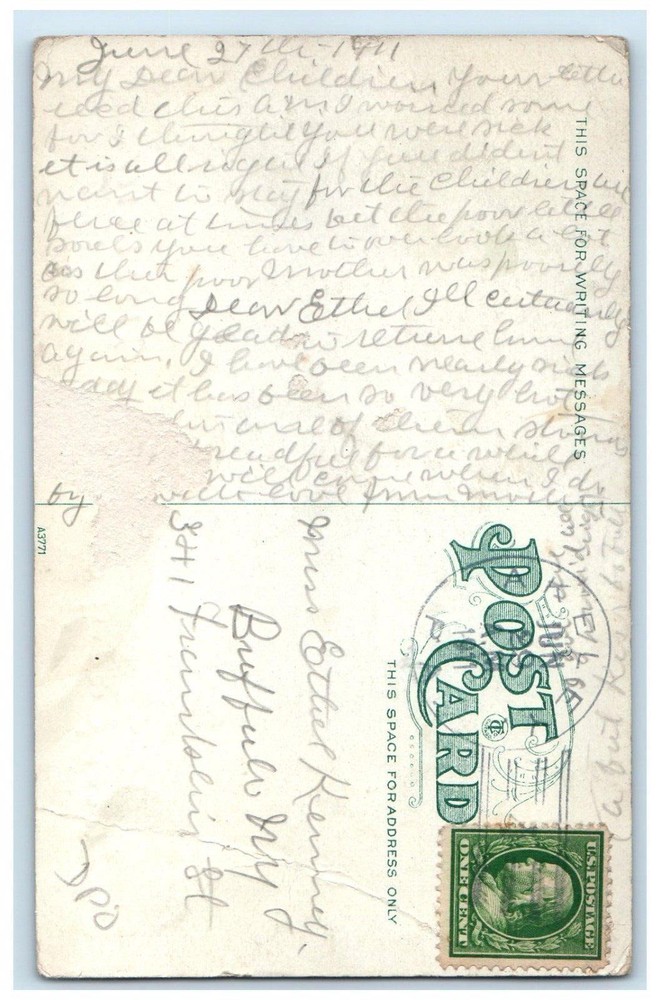 June 27th-1911
My Dear Children, Your letter
recd this A.M. I worried some
for I thought you were sick
it is all right if you dident
want to stay for the Children
there at times but the poor little
souls you have to over look a lot
as their poor Mother was poorly
so long Dear Ethel, Ill certainly
will be glad to return home
again. I have been nearly sick
today it has been so very hot
of them storms
dreadful for a while
will come when I do
with love from Mother
by
THIS SPACE FOR WRITING MESSAGES
A3771
POST CARD
THIS SPACE FOR ADDRESS ONLY
Miss Ethel Kenney,
Buffalo NY
341 Frenslin St
DPO
JUN
U.S. POSTAGE
ONE CENT